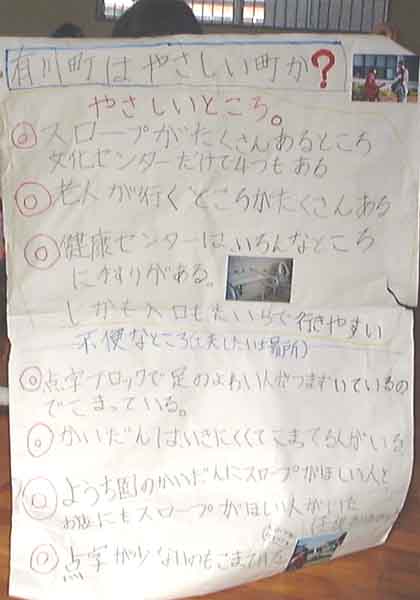 有川町はやさしい町か?
やさしいところ。
スロープがたくさんあるところ
文化センターだけで4つもある
老人が行くところがたくさんある
健康センターは、いろんなところ
に手すりがある。
しかも入口もたいらで行きやすい
不便なところ(工夫したい場所)
点字ブロックで足のよわい人がつまずいているの
でこまっている。
かいだんはいきにくくてこまってる人がいる。
ようち園のかいだんにスロープがほしい人と
お店にもスロープがほしい人がいた
点字が少ないのもこまっている